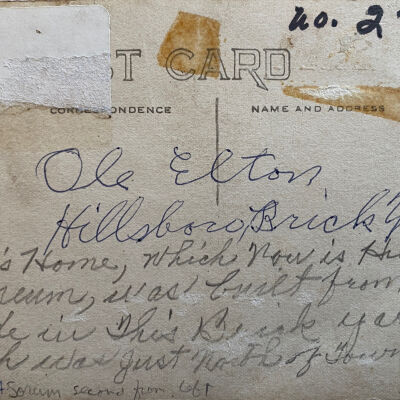 no. 2
ST CARD
CORRESPONDENCE NAME AND ADDRESS
Ole Elton
Hillsboro, Brick Y
's Home, which Now is H
seum, was built from
de in This Brick yar
h was Just North of Town
second from left